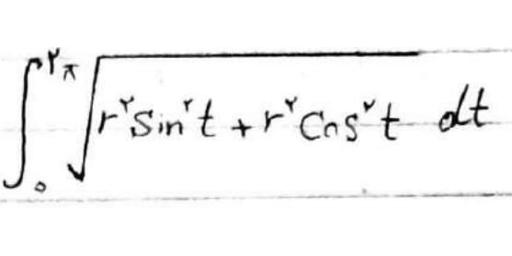 ∫₀^{۲π} √(r^۲ sin^۲ t + r^۲ cos^۲ t) dt